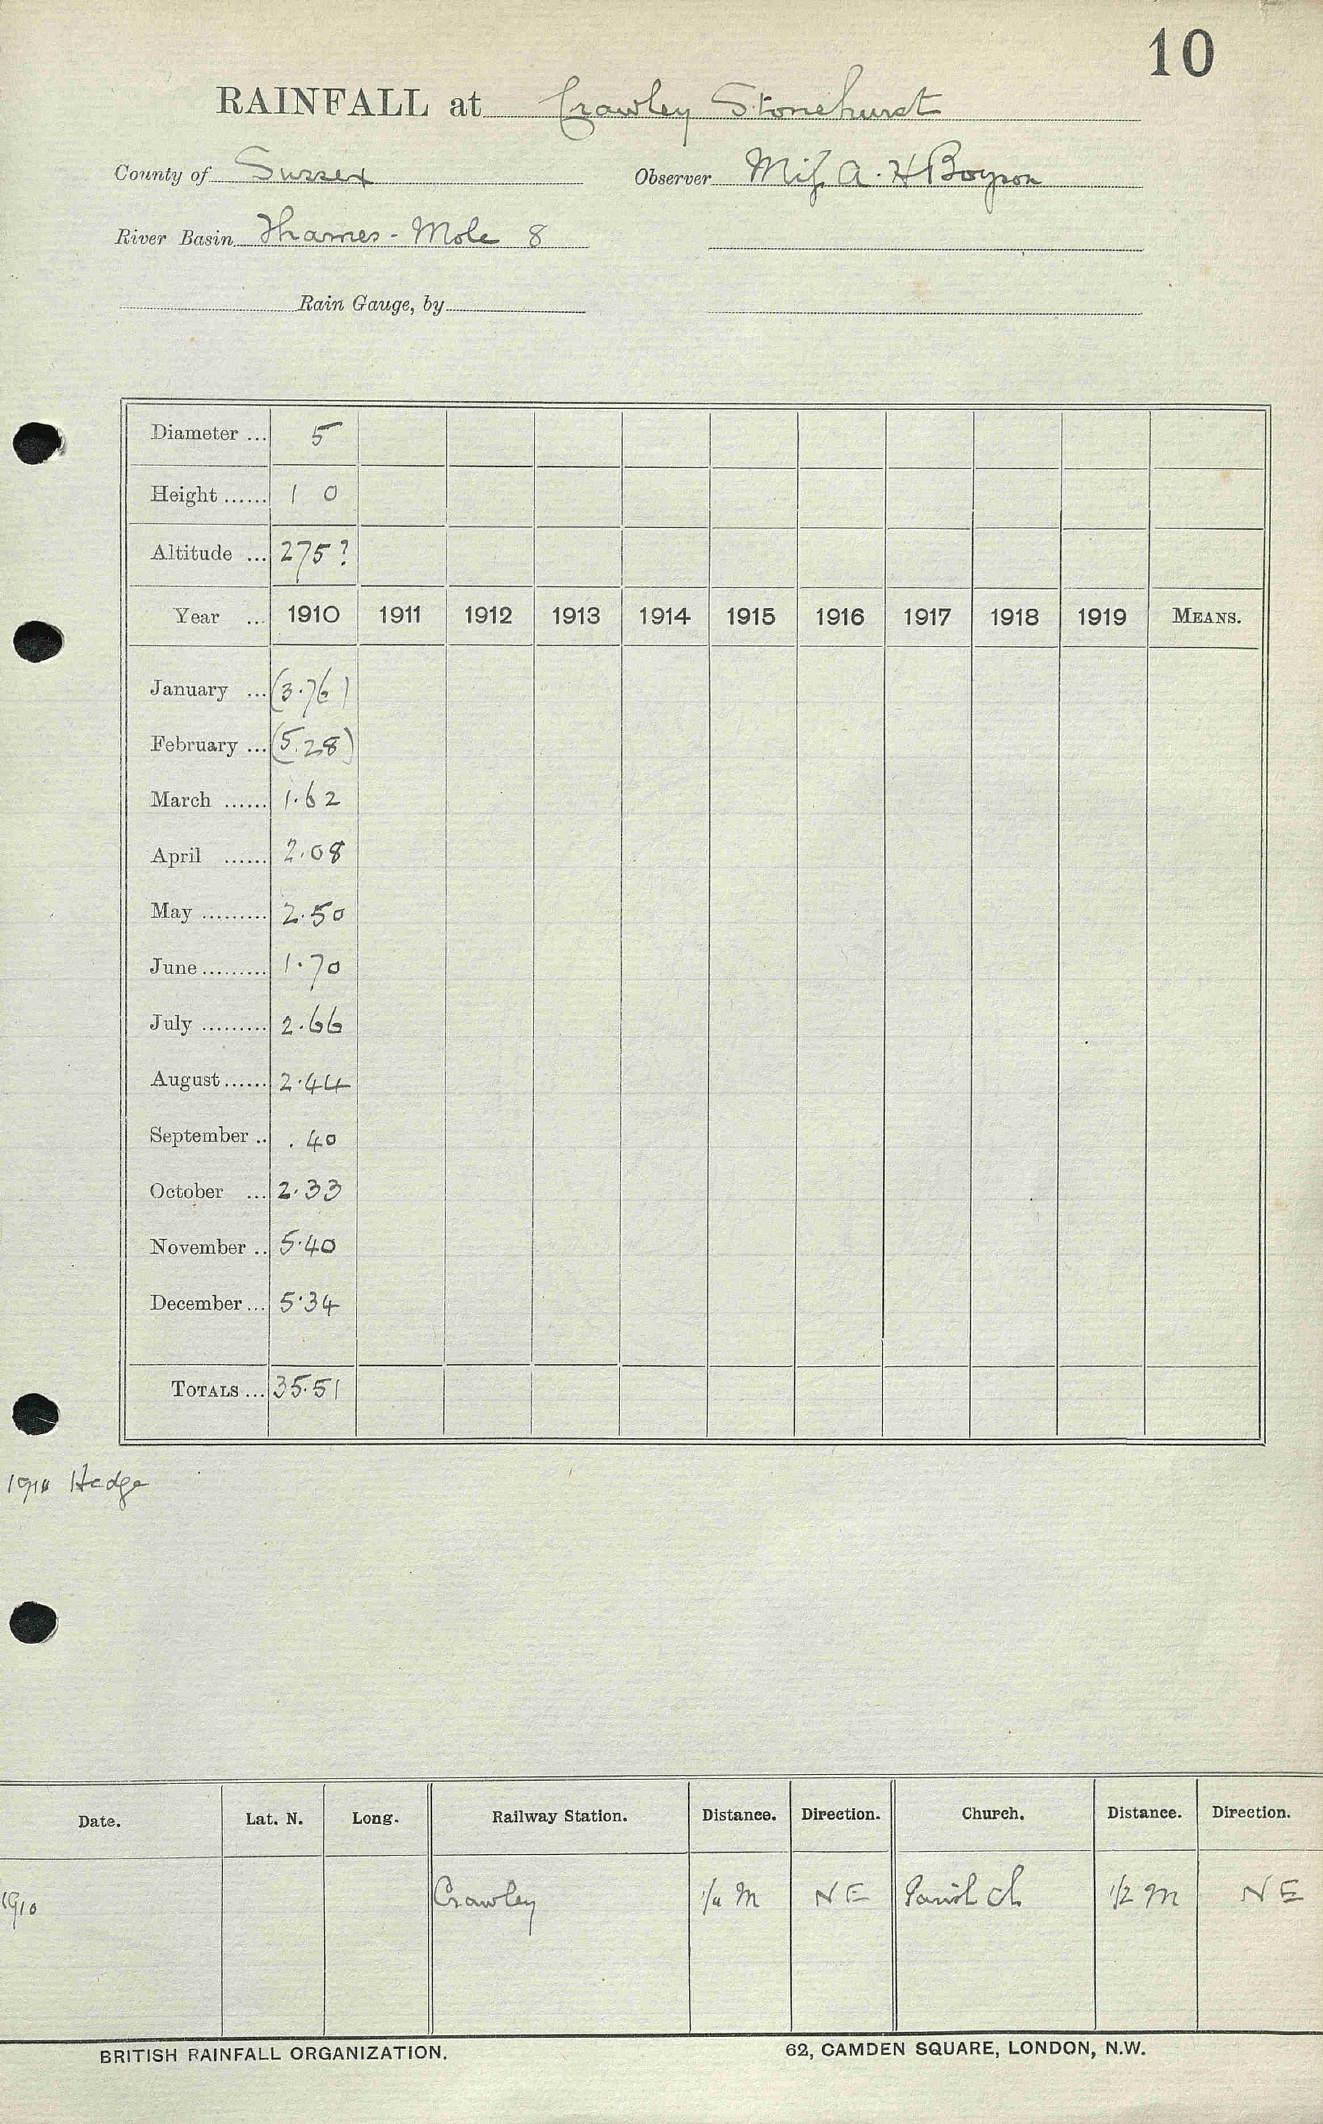 10
RAINFALL at Crawley Stonehurst
County of Sussex Observer Miss A. H Boyson
River Basin Thames - Mole 8
Rain Gauge, by
Diameter ... 5
Height ...... 1 0
Altitude ... 275?
Year ... 1910 1911 1912 1913 1914 1915 1916 1917 1918 1919 MEANS.
January ... (3.76)
February ... (5.28)
March ...... 1.62
April ...... 2.08
May ......... 2.50
June ......... 1.70
July ......... 2.66
August ...... 2.44
September .. .40
October ... 2.33
November .. 5.40
December ... 5.34
TOTALS ... 35.51
1910 Hedge
Date. Lat. N. Long. Railway Station. Distance. Direction. Church. Distance. Direction.
1910 Crawley 1/4 M NE Parish Ch 1/2 M NE
BRITISH RAINFALL ORGANIZATION. 62, CAMDEN SQUARE, LONDON, N.W.